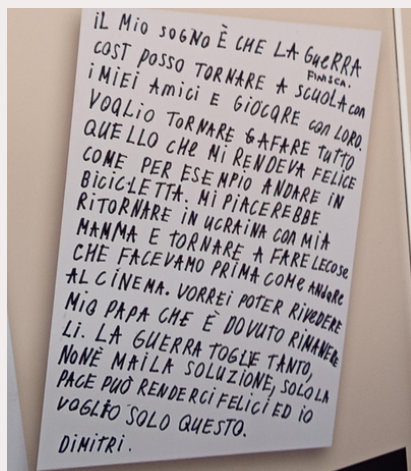 iL Mio SOGNO È CHE LA GUERRA
FINISCA.
COSÌ POSSO TORNARE A SCUOLA con
i MIEI AMICI E GIOCARE con LORO.
VOGLIO TORNARE A FARE TUTTO
QUELLO CHE MI RENDEVA FELICE
COME PER ESEMPIO ANDARE IN
BICICLETTA. MI PIACEREBBE
RITORNARE IN UCRAINA CON MIA
MAMMA E TORNARE A FARE LE COSE
CHE FACEVAMO PRIMA COME ANDARE
AL CINEMA. VORREI POTER RIVEDERE
MIO PAPA CHE È DOVUTO RIMANERE
LI. LA GUERRA TOGLIE TANTO,
NON È MAI LA SOLUZIONE, SOLO LA
PACE PUÒ RENDERCI FELICI ED IO
VOGLIO SOLO QUESTO.
DIMITRI.